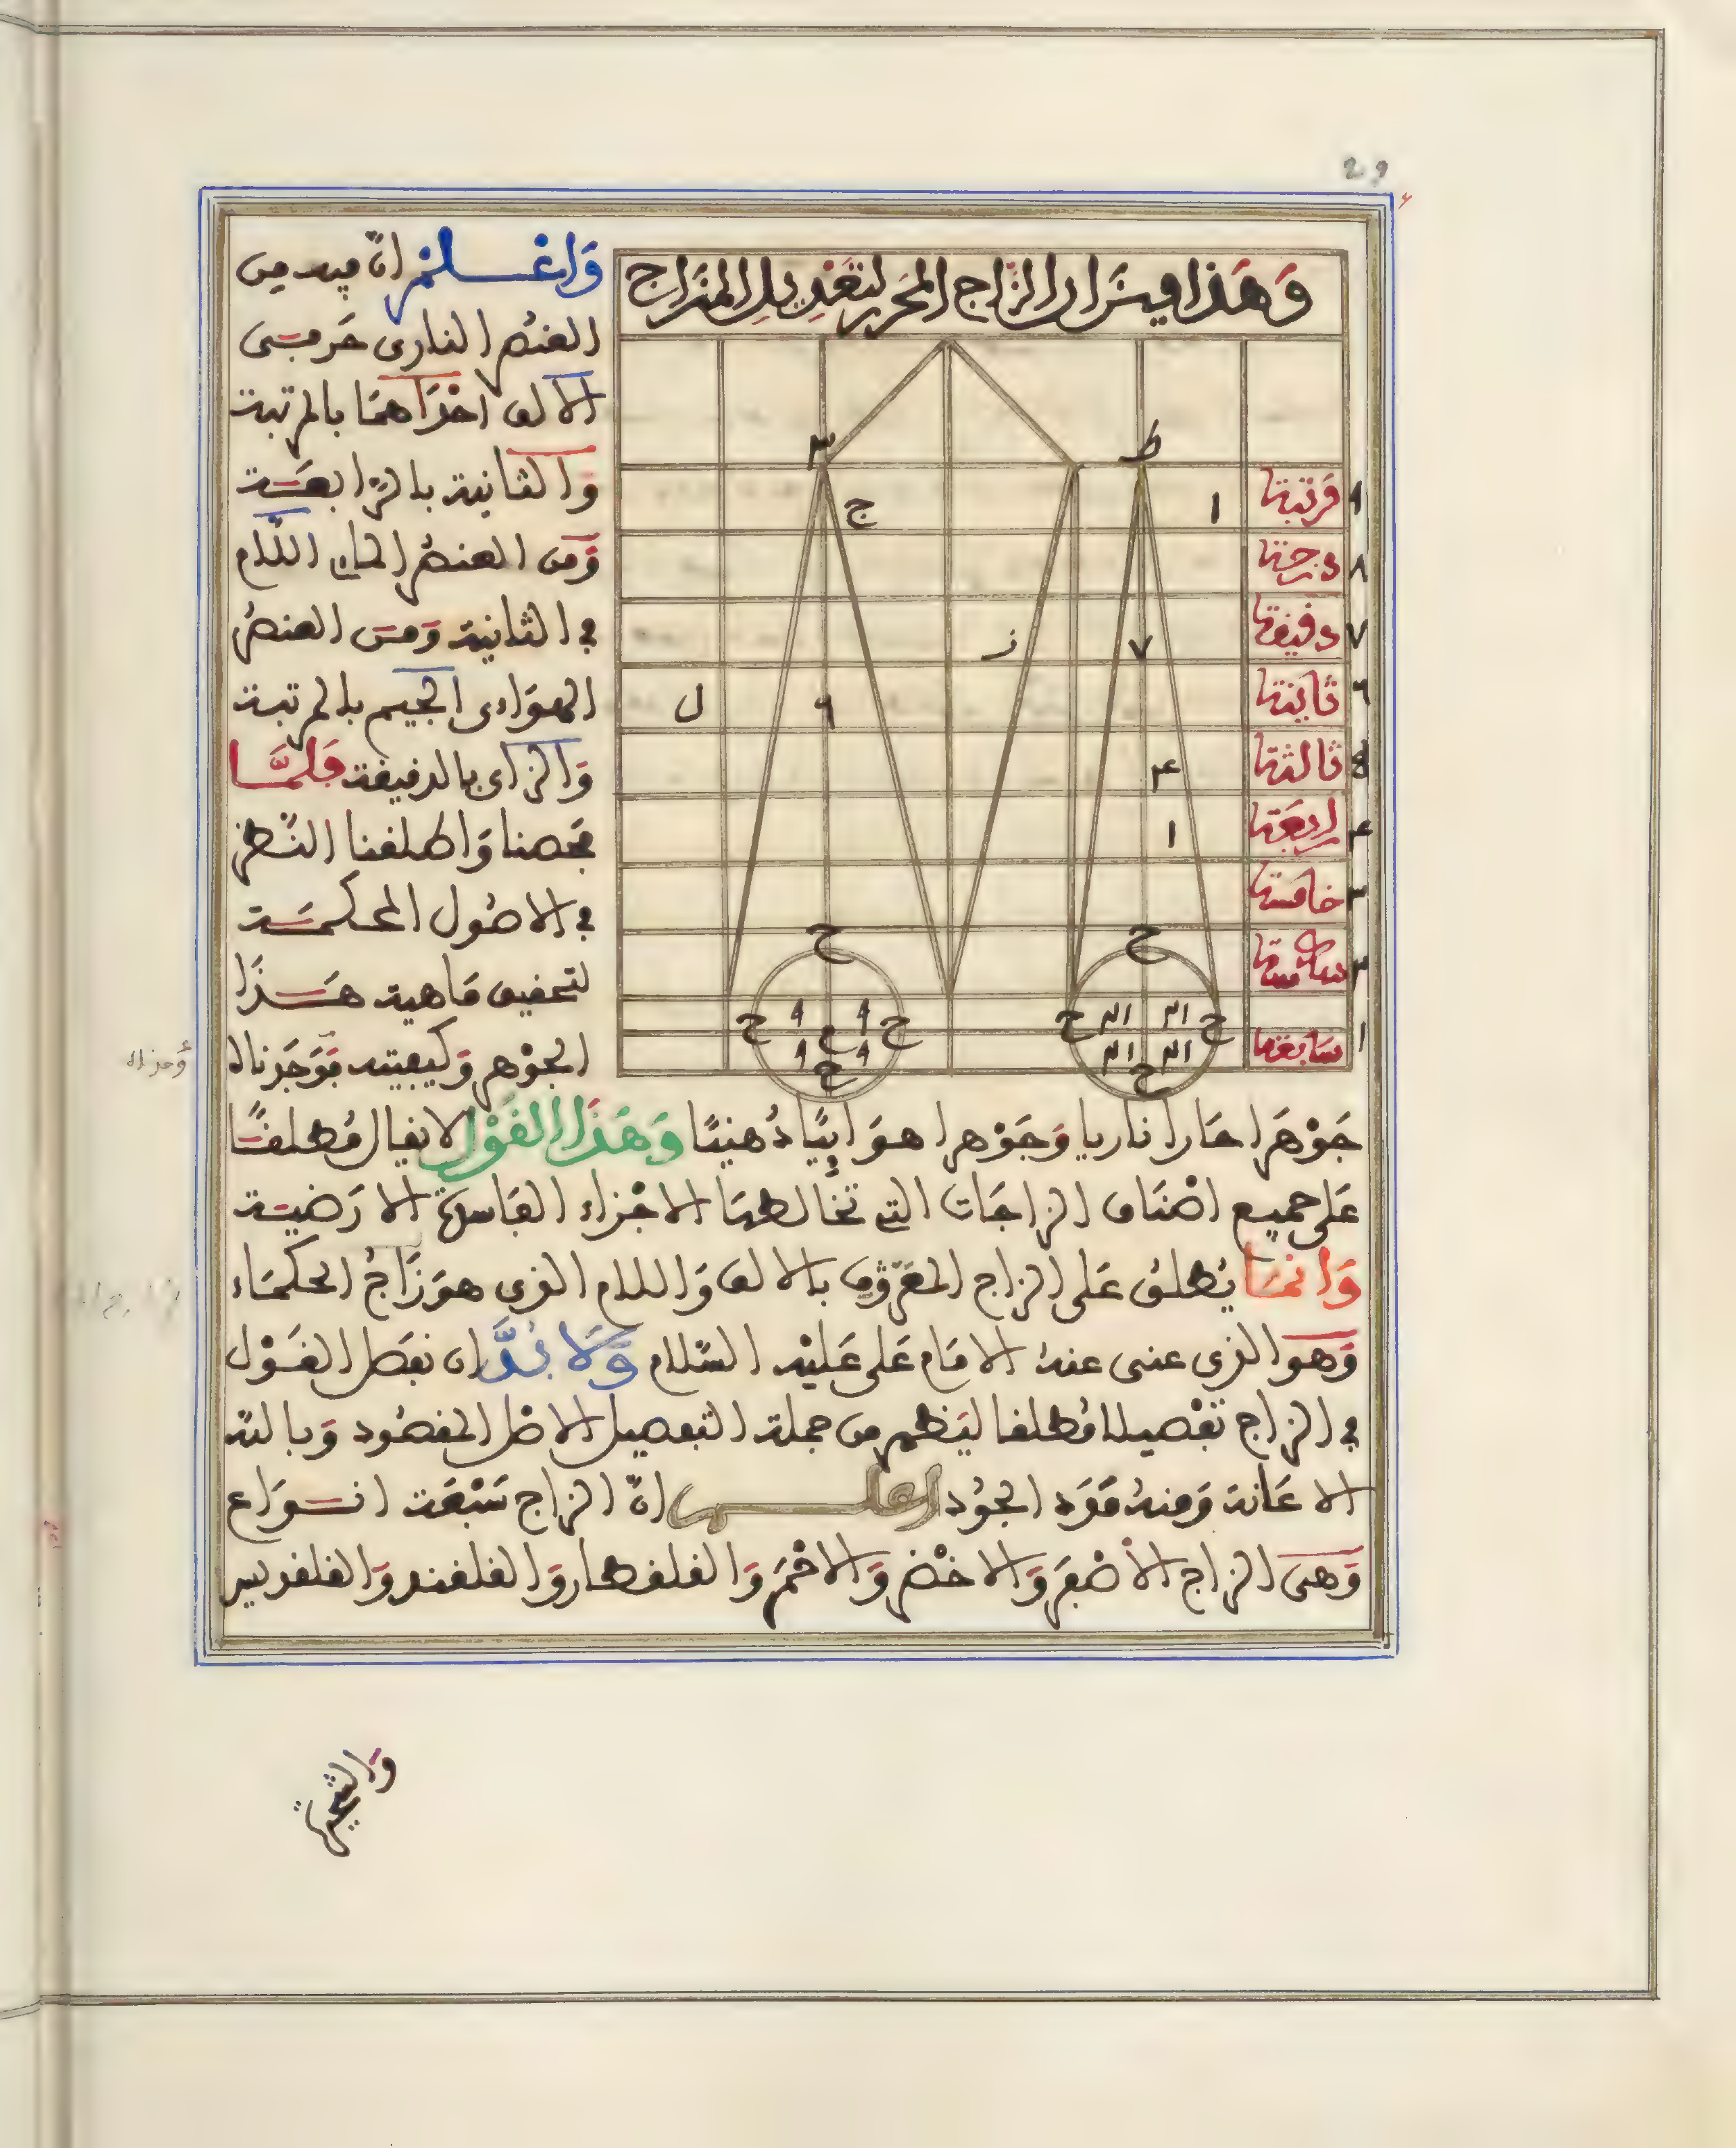 وَهَذا ميزان الزّاج المحَرر لتعْدِيلِ المِزَاج
ط
ج
ا
مرتبة ٩
درجة ٨
دقيقة ٧
ثانية ٦
ثالثة
رابعة ٤
خامسة ٣
سادسة ٢
سابعة ١
ز
٧
ل
٤
ا
ح
ح
ح
ح
ح
ح
ح
ح
وَاعْلمْ انّ فيه من
العنصر النارى حرفين
الالف احْدَاهمَا بالمرتبة
وَالثانية بالرّابعَة
وَمن العنصر المائى اللّام
فى الثانية وَمن العنصر
الهوَاءى الجيم بالمرتبة
وَالزاى بالدقيقة فلمَّا
فحصنا وَاطلقنا النّظر
فى الاصُول المحكمَة
لتحقيق مَاهية هَذَا
الجوْهر وَكيفيته فوَجَدناه
جَوْهَرا حَارا ناريا وَجَوْهرا هوَائيًا دُهنيًا وَهَذا القَوْل لا يقال مُطلقًا
عَلى جميع اصْنَاف الزاجَات التى تخالطهَا الاجْزاء الفَاسدة الارَضية
وَانمَا يُطلقُ عَلى الزاج المعَرُوف بالالف وَاللام الذى هوَ زَاجُ الحكمَاء
وَهو الذى عنى عنهُ الامَام عَلى عَليْه السّلام وَلَا بُدَّ ان نفصَل القَوْل
فى الزاج تفْصيلا مُطلقا ليَظهر من جملة التفصيل الاصْل المقصُود وَبالله
الاعَانة وَمنهُ مَوَد الجوُد اعلم انّ الزاج سَبْعَة انوَاع
وَهى الزاج الاصْفَر وَالاخْضر وَالاحْمَر وَالقلقطار وَالقلقند وَالقلقديس
وَالشحيرة